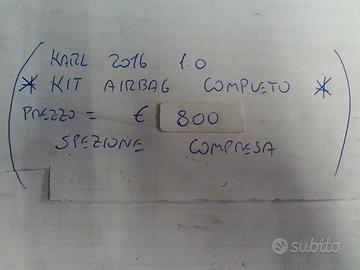 KARL 2016 1.0
* KIT AIRBAG COMPLETO *
PREZZO = € 800
SPEZIONE COMPRESA
subito